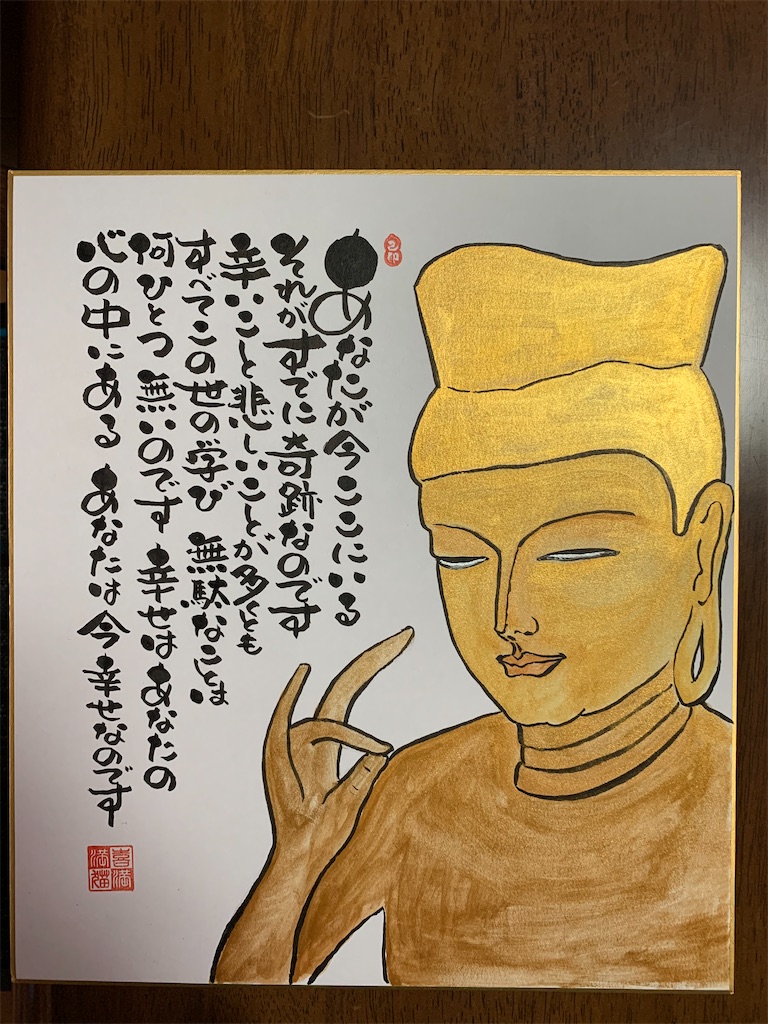 あなたが今ここにいる
それがすでに奇跡なのです
辛いこと悲しいことが多くとも
すべてこの世の学び 無駄なことは
何ひとつ 無いのです 幸せはあなたの
心の中にある あなたは 今 幸せなのです
喜満
満猫